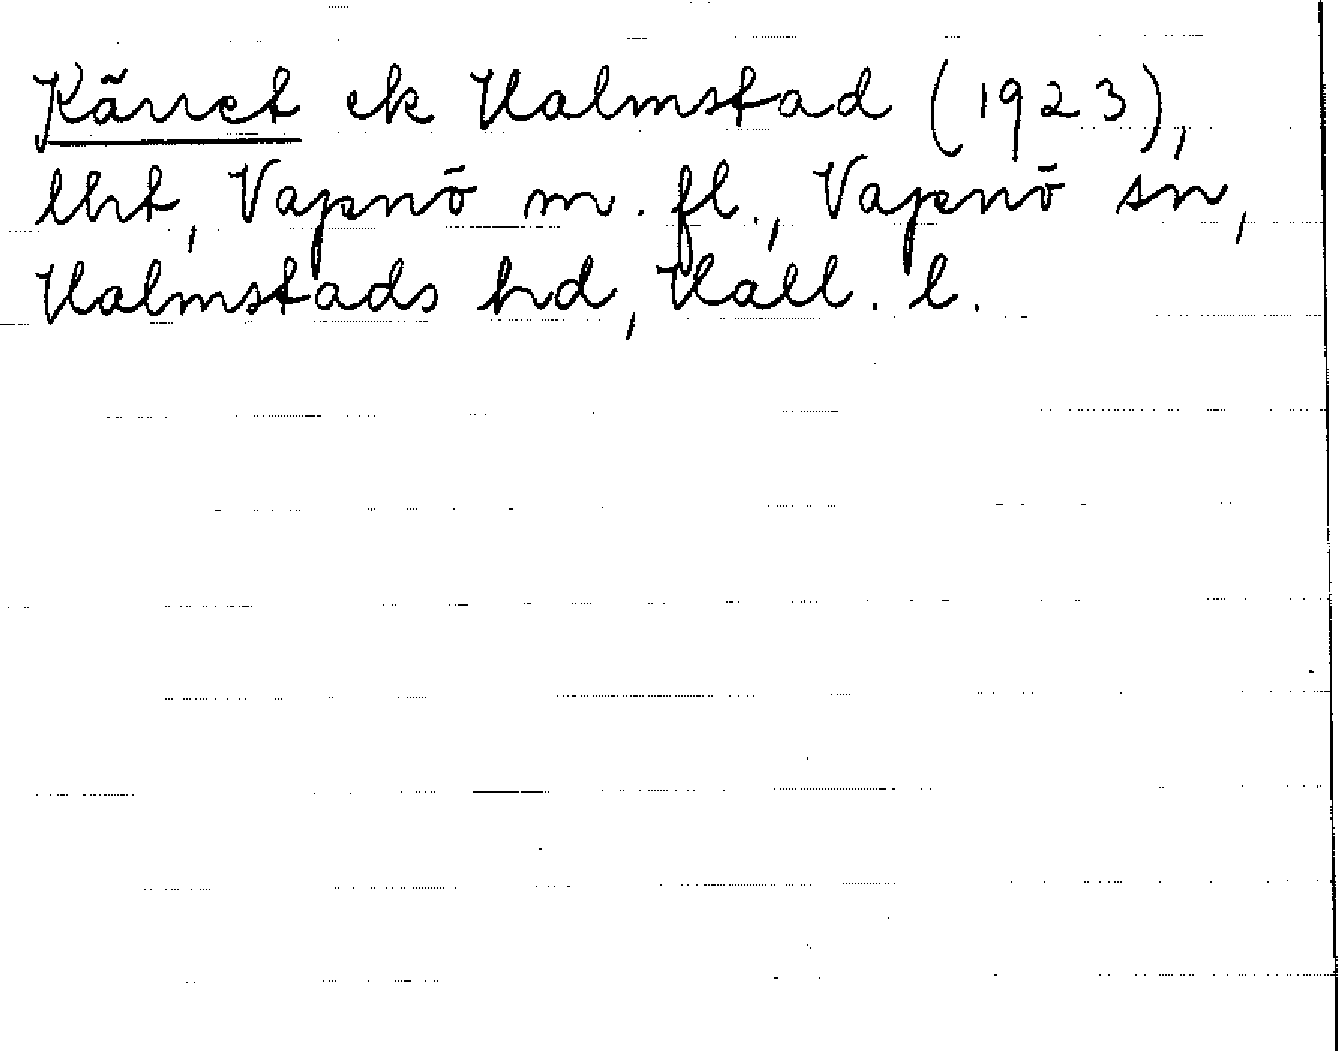 Kärret ek Halmstad (1923),
lht, Vapnö m. fl., Vapnö sn,
Halmstads hd, Hall. l.